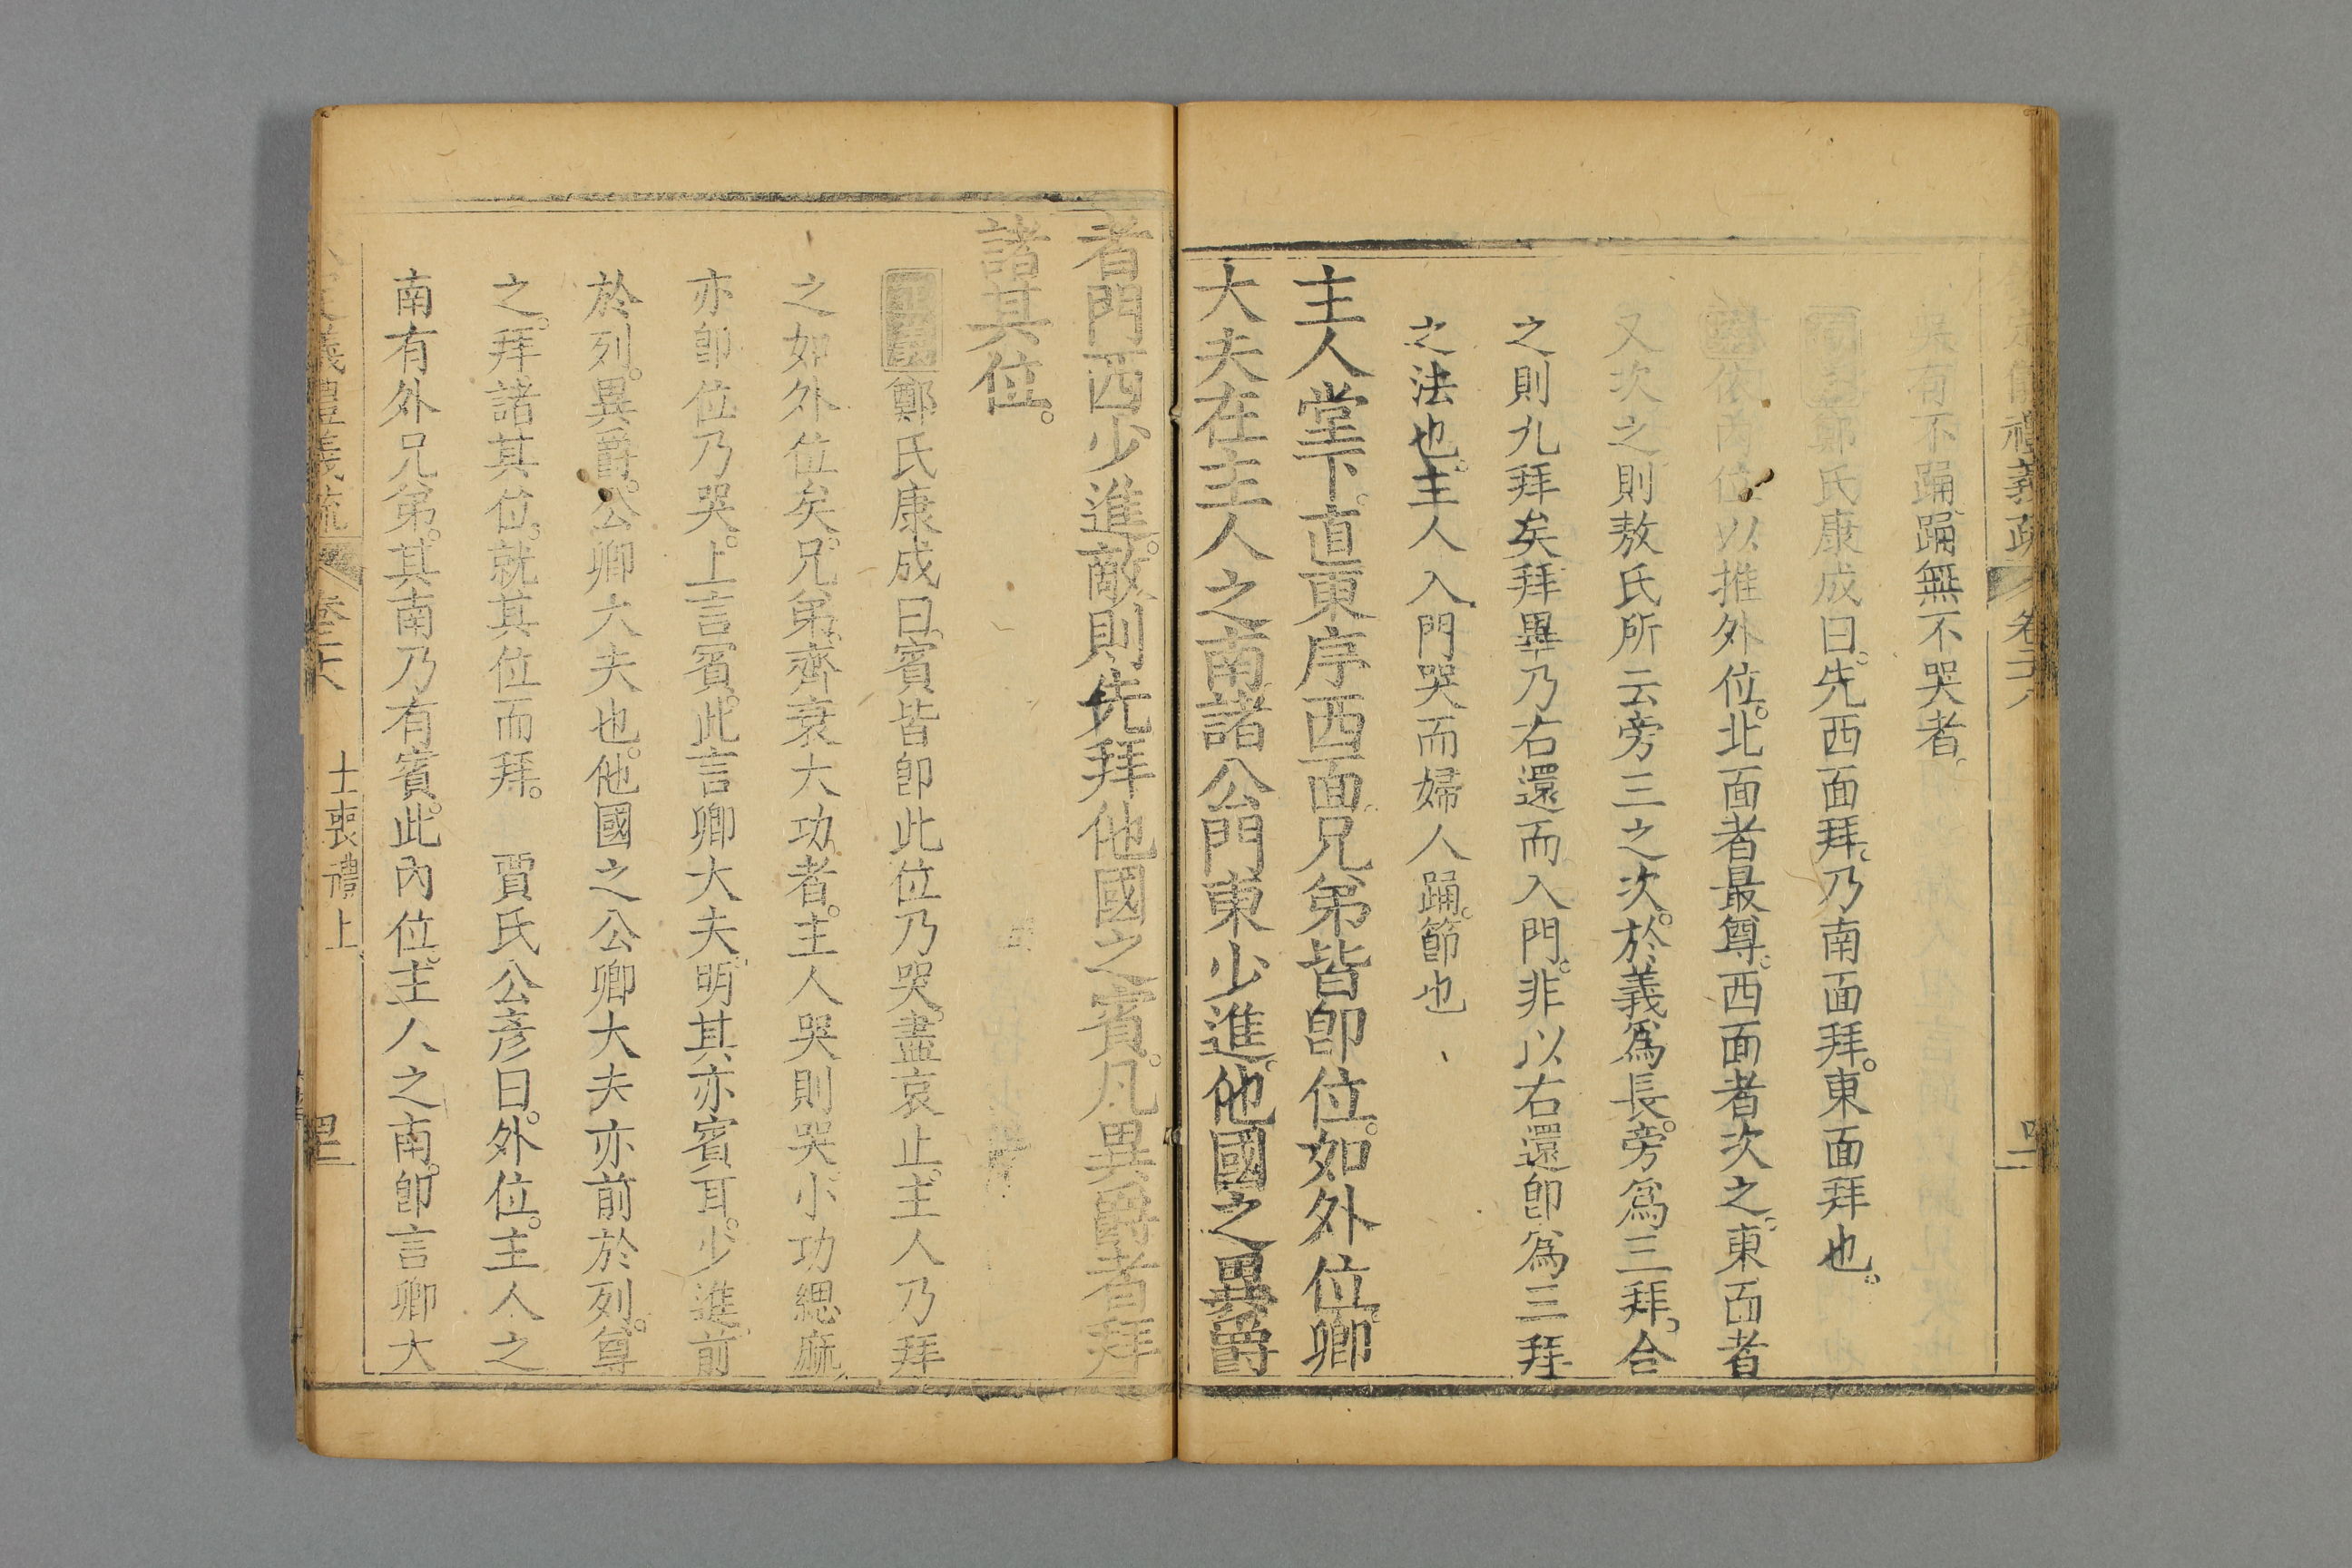 儀禮義疏 卷二十八
有不踊踊無不哭者
鄭氏康成曰先西面拜乃南面拜東面拜也
依內位以推外位北面者最尊西面者次之東面者
又次之則敖氏所云旁三之次於義為長旁為三拜合
之則九拜矣拜畢乃右還而入門非以右還即為三拜
之法也主人入門哭而婦人踊節也
主人堂下直東序西面兄弟皆即位如外位卿
大夫在主人之南諸公門東少進他國之異爵
者門西少進敵則先拜他國之賓凡異爵者拜
諸其位
鄭氏康成曰賓皆即此位乃哭盡哀止主人乃拜
之如外位矣兄弟齊衰大功者主人哭則哭小功緦麻
亦即位乃哭上言賓此言卿大夫明其亦賓耳少進前
於列異爵公卿大夫也他國之公卿大夫亦前於列尊
之拜諸其位就其位而拜 賈氏公彥曰外位主人之
南有外兄弟其南乃有賓此內位主人之南即言卿大
義禮義疏 卷二十八 士喪禮上 四二